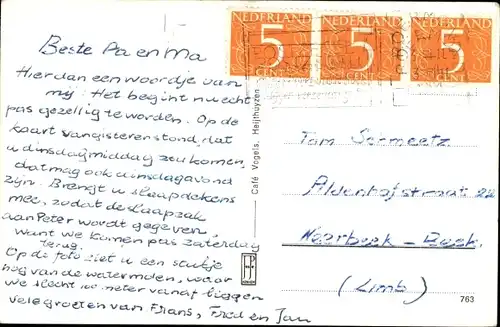 Beste Pa en Ma
Hier dan een woordje van
mij. Het begint nu echt
pas gezellig te worden. Op de
kaart van gisteren stond, dat
u dinsdagmiddag zou komen,
dat mag ook dinsdagavond
zijn. Brengt u slaapdekens
mee, zodat de slaapzak
aan Peter wordt gegeven,
want we komen pas zaterdag
terug.
Op de foto ziet u een stukje
hog van de watermolen, waar
we slecht 100 meter vanaf liggen
vele groeten van Frans, Fred en Jan
Café Vogels, Heijthuyzen
NEDERLAND
5
CENT
NEDERLAND
5
CENT
NEDERLAND
5
CENT
Tom Schmeetz
Aldenhofstraat 22
Neerbeek - Beek
(Limb)
763